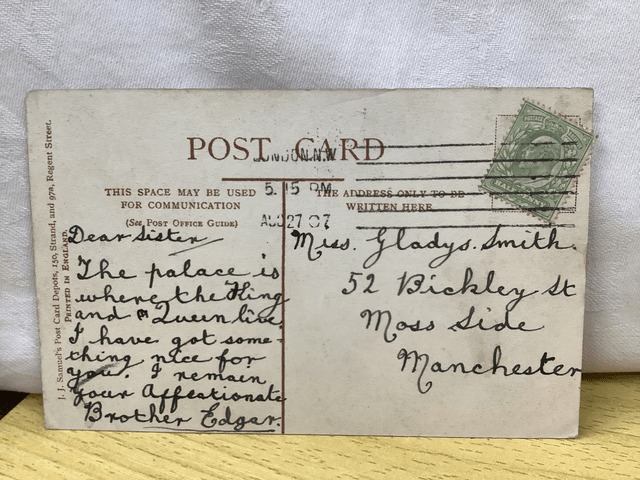 POST CARD
LONDON.N.W
5.15 PM
AUG 27 07
THIS SPACE MAY BE USED
FOR COMMUNICATION
(See POST OFFICE GUIDE)
THE ADDRESS ONLY TO BE
WRITTEN HERE
J. J. Samuel's Post Card Depots, 150, Strand, and 97a, Regent Street.
PRINTED IN ENGLAND.
Dear Sister
The palace is
where the King
and Queen live.
I have got some-
thing nice for
you. I remain
your Affectionate
Brother Edgar.
Miss. Gladys. Smith.
52 Bickley St
Moss Side
Manchester